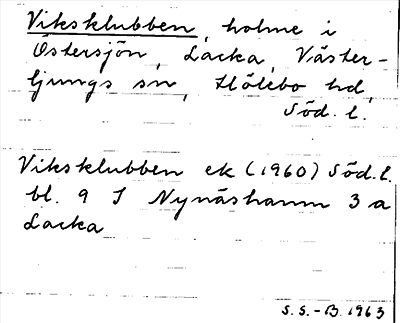 Viksklubben, holme i
Östersjön, Lacka, Väster-
ljungs sn, Hölebo hd,
Söd. l.
Viksklubben ek (1960) Söd. l.
bl. 9 I Nynäshamn 3 a
Lacka
S. S. - B. 1963